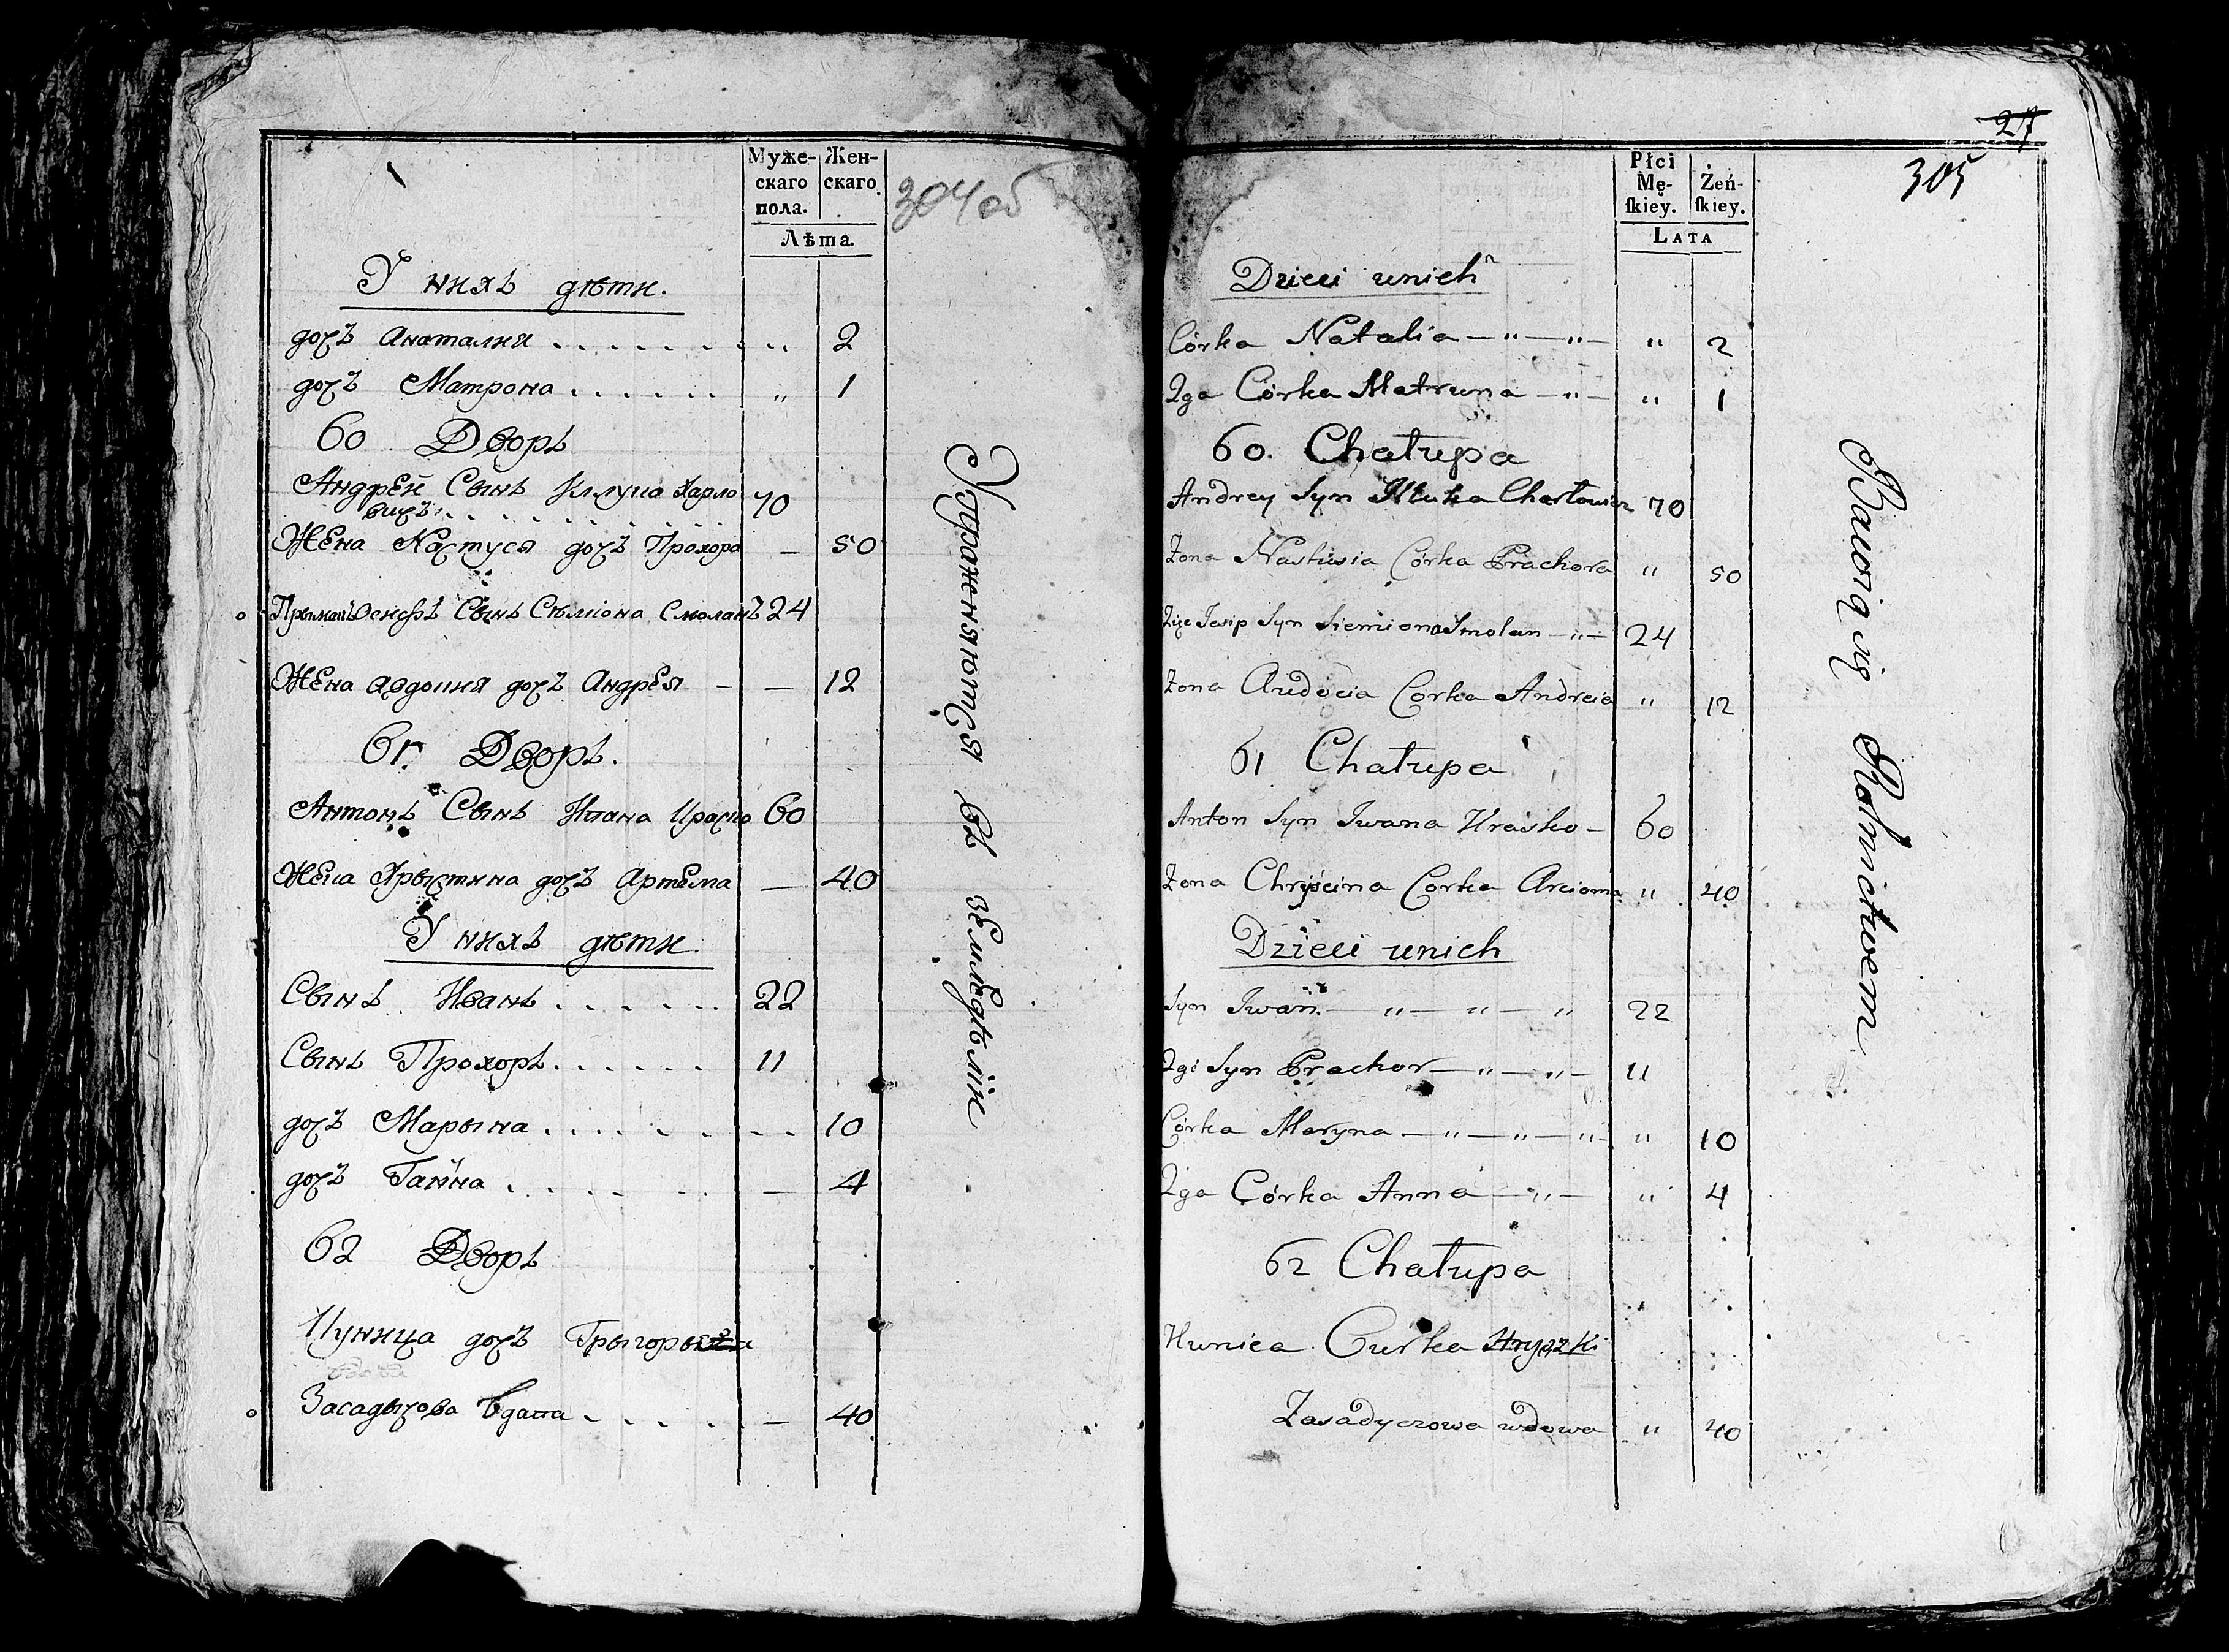 Муже-
скаго
пола.
Жен-
скаго
Лѣта.
304 об
У нихъ дѣти.
дочь Анаталия . . . . . . . „ 2
дочь Матрона . . . . . . „ 1
60 Дворъ
Андрей Сынъ Илука Харло
вичъ . . . . . . . 70
Жена Настуся дочь Прохора — 50
Прыманъ Осифъ Сынъ Сѣміона Смоланъ 24
Жена Авдоция дочь Андрея — — 12
61. Дворъ.
Антонъ Сынъ Ивана Краско 60
Жена Хрыстина дочь Артема — 40
У нихъ дѣти.
Сынъ Иванъ . . . . . . 22
Сынъ Прохоръ . . . . . . 11
дочь Марына . . . . . . . 10
дочь Ганна . . . . . — 4
62 Дворъ
Куница дочь
вдова
Засадычова вдова . . . . . — 40
Упражняются въ земледѣліи
27
305
Płci
Mę-
ſkiey.
Żeń-
ſkiey.
LATA
Dzieci unich
Córka Natalia — „ — „ — „ 2
2ga Córka Matruna — „ — „ 1
60. Chałupa
Andrey Syn Iłłuka Charłowicz 70
Żona Nastusia Córka Prachora „ 50
Zięć Josip Syn Siemiona Smolan — „ — 24
Żona Audocia Corka Andreia „ 12
61 Chałupa
Anton Syn Iwana Kraśko — 60
Żona Chryścina Corka Arcioma „ 40
Dzieci unich
Syn Iwan — „ — „ — „ 22
2gi Syn Prachor — „ — „ — 11
Córka Maryna — „ — „ — „ — „ 10
2ga Córka Anna — „ — „ 4
62 Chałupa
Kunica Curka Hryszki
Zasadyczowa wdowa „ 40
Bawią się Rolnictwem